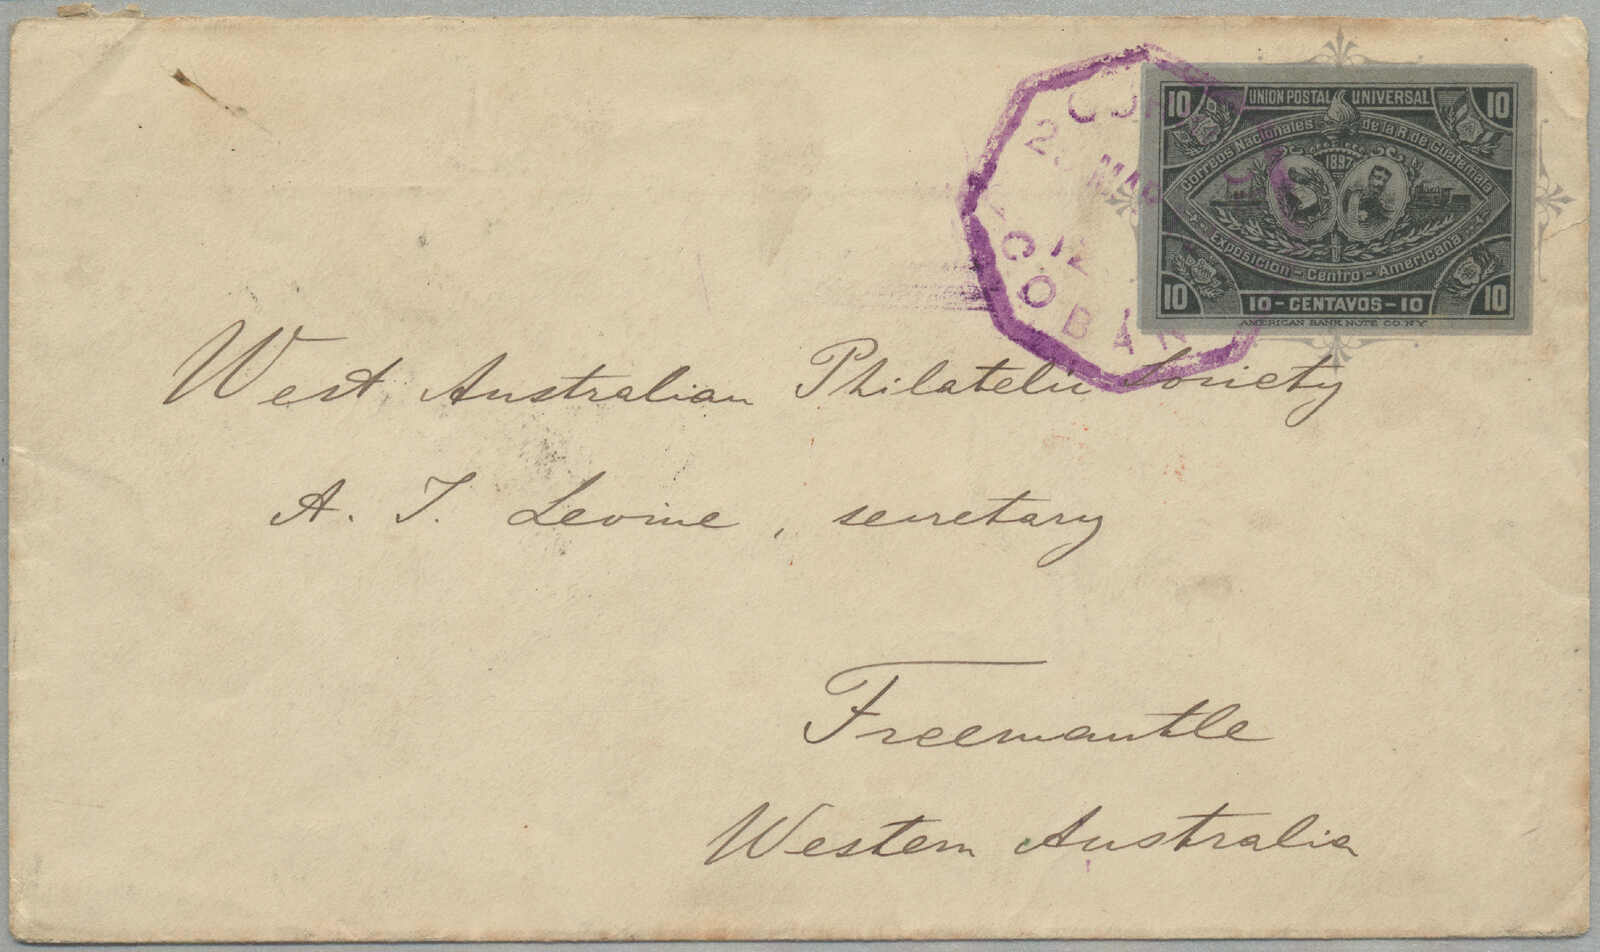 10 UNION POSTAL UNIVERSAL 10
Correos Nacionales de la R. de Guatemala
1897
Exposicion - Centro - Americana
10 10
10 - CENTAVOS - 10
AMERICAN BANK NOTE CO. N.Y.
12
COBAN
West Australian Philatelic Society
A. T. Levine, secretary
Freemantle
Western Australia